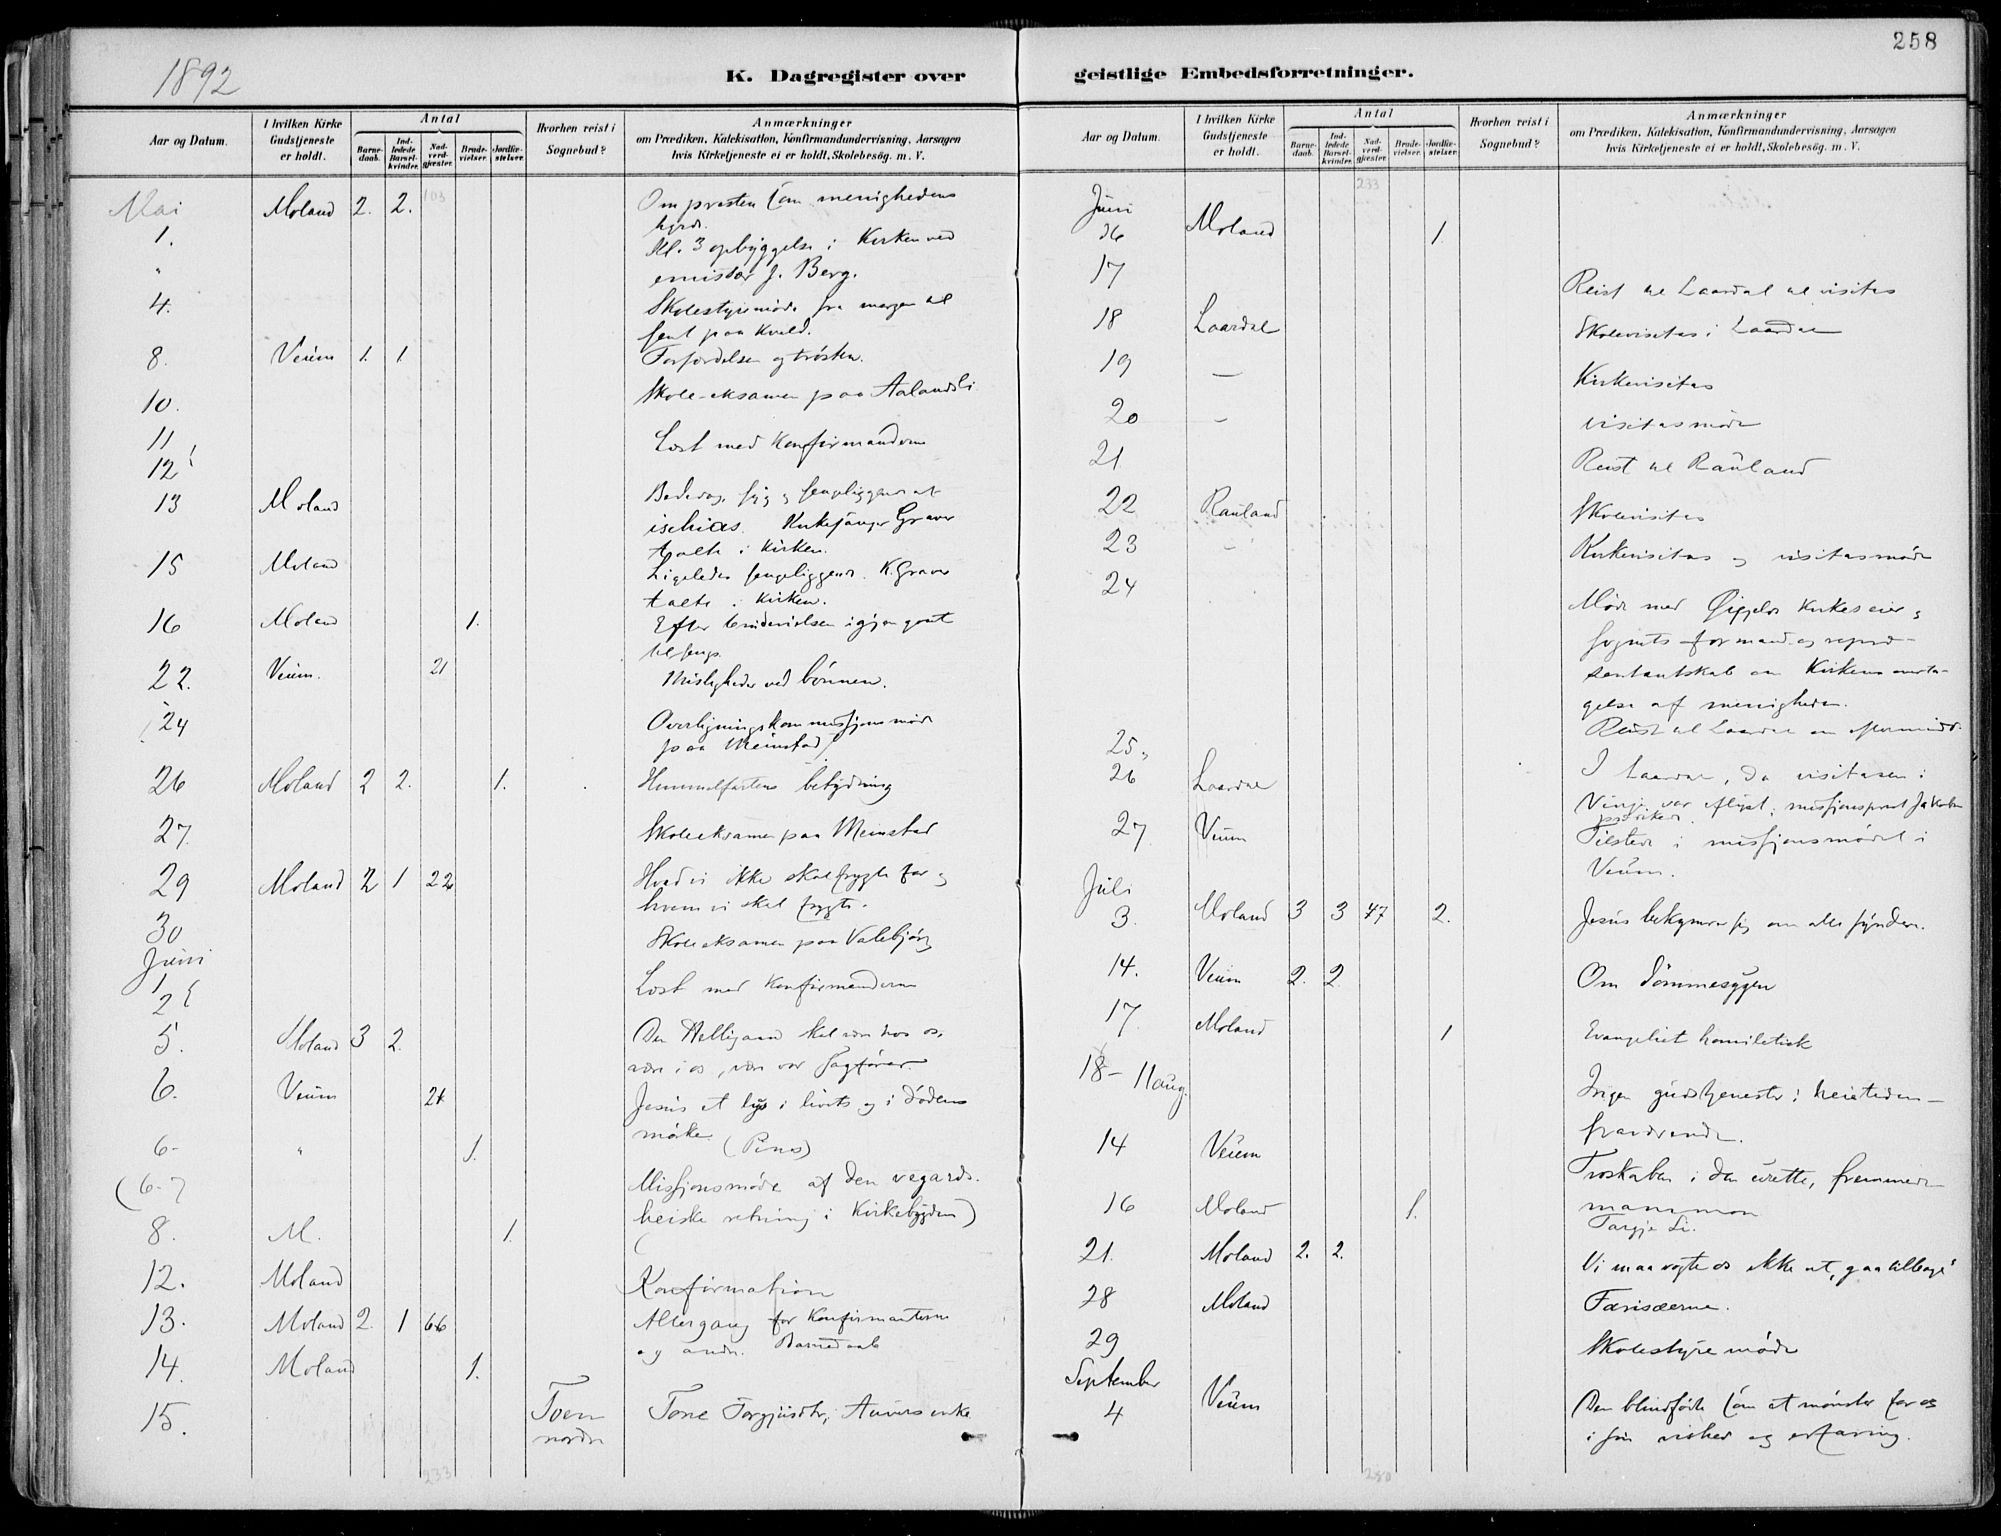 258
1892
K. Dagregister over
geistlige Embedsforretninger.
Aar og Datum.
I hvilken Kirke Gudstjeneste er holdt.
Antal
Barnedaab.
Indledede Barselkvinder.
Nadverdgjester.
Brudevielser.
Jordfæstelser.
Hvorhen reist i Sognebud?
Anmærkninger
om Prædiken, Katekisation, Konfirmandundervisning, Aarsagen
hvis Kirketjeneste ei er holdt, Skolebesøg. m. V.
Mai Moland 2. 2. 103 Om presten som menighedens
1. hyrde.
" Kl. 3 opbyggelse i Kirken ved
emissær J. Berg.
4. Skolestyremøde fra morgen til
sent paa kveld.
8. Veum 1. 1 Forfølgelsen og trøsten.
10. Skole-eksamen paa Aalandsli
11
12 Læst med Konfirmanderne
13 Moland Bededag, syg og sengeliggende af
ischias. Kirkesanger Graver
talte i Kirken.
15 Moland Ligeledes sengeliggende. K. Graver
talte i Kirken.
16 Moland 1. Efter brudevielsen igjen gaat
tilsengs.
22. Veum. 21 Misligheder ved bønnen.
24 Overligningskommissjonsmøde
paa Meinstad
26 Moland 2 2. 1. Himmelfartens betydning
27. Skoleeksamen paa Meinstad
29 Moland 2 1 22 Hvad vi ikke skal frygte for og
hvem vi skal frygte.
30 Skoleeksamen paa Valebjørg
Juni
1
2 Læst med Konfirmanderne
5. Moland 3 2. Den Helligaand skal være hos os,
være i os, være vor Sagfører.
6. Veum 21 Jesus et lys i livets og i dødens
mørke.
6- " 1. (Pins)
(6-7 Missjonsmøde af den vegards-
heiske retning i Kirkebygden)
8. M. 1.
12. Moland Konfirmation
13. Moland 2. 1 66 Altergang for Konfirmanterne
og andre. Barnedaab
14. Moland 1.
15. Toen nordre Tone Torgjusdtr, Aanvrs enke
233
Aar og Datum.
I hvilken Kirke Gudstjeneste er holdt.
Antal
Barnedaab.
Indledede Barselkvinder.
Nadverdgjester.
Brudevielser.
Jordfæstelser.
Hvorhen reist i Sognebud?
Anmærkninger
om Prædiken, Katekisation, Konfirmandundervisning, Aarsagen
hvis Kirketjeneste ei er holdt, Skolebesøg. m. V.
233
Juni
16 Moland 1.
17 Reist til Laardal til visitas
18 Laardal Skolevisitas i Laardal
19 — Kirkevisitas
20 — visitasmøde
21 Reist til Rauland
22 Rauland Skolevisitas
23 — Kirkevisitas og visitasmøde
24 Møde med Kirkeseier og
sognets formand og repræ-
sentantskab om Kirkens overta-
gelse af menigheden.
25, Reist til Laardal om eftermidd.
26 Laardal I Laardal, da visitasen i
Vinje var aflyst; missjonsprest Jakobsen
prædikede.
27 Veum Tilstede i missjonsmødet i
Veum.
Juli
3. Moland 3 3 47 2. Jesus bekymrer sig om alle syndere.
14. Veum 2. 2. Om dømmesygen
17. Moland 1 Evangeliet homiletisk
18- 11 aug. Ingen gudstjeneste; ferietiden-
fraværende.
14 Veum Troskaben i den urette, fremmede
mammon
16 Moland 1. Targje Li.
21. Moland 2. 2. Vi maa vogte os ikke at "gaa tilbage"
28 Moland Farisæerne.
29 Skolestyremøde
September
4 Veum Den blindfødte som et mønster for os
i sin vished og erfaring.
280